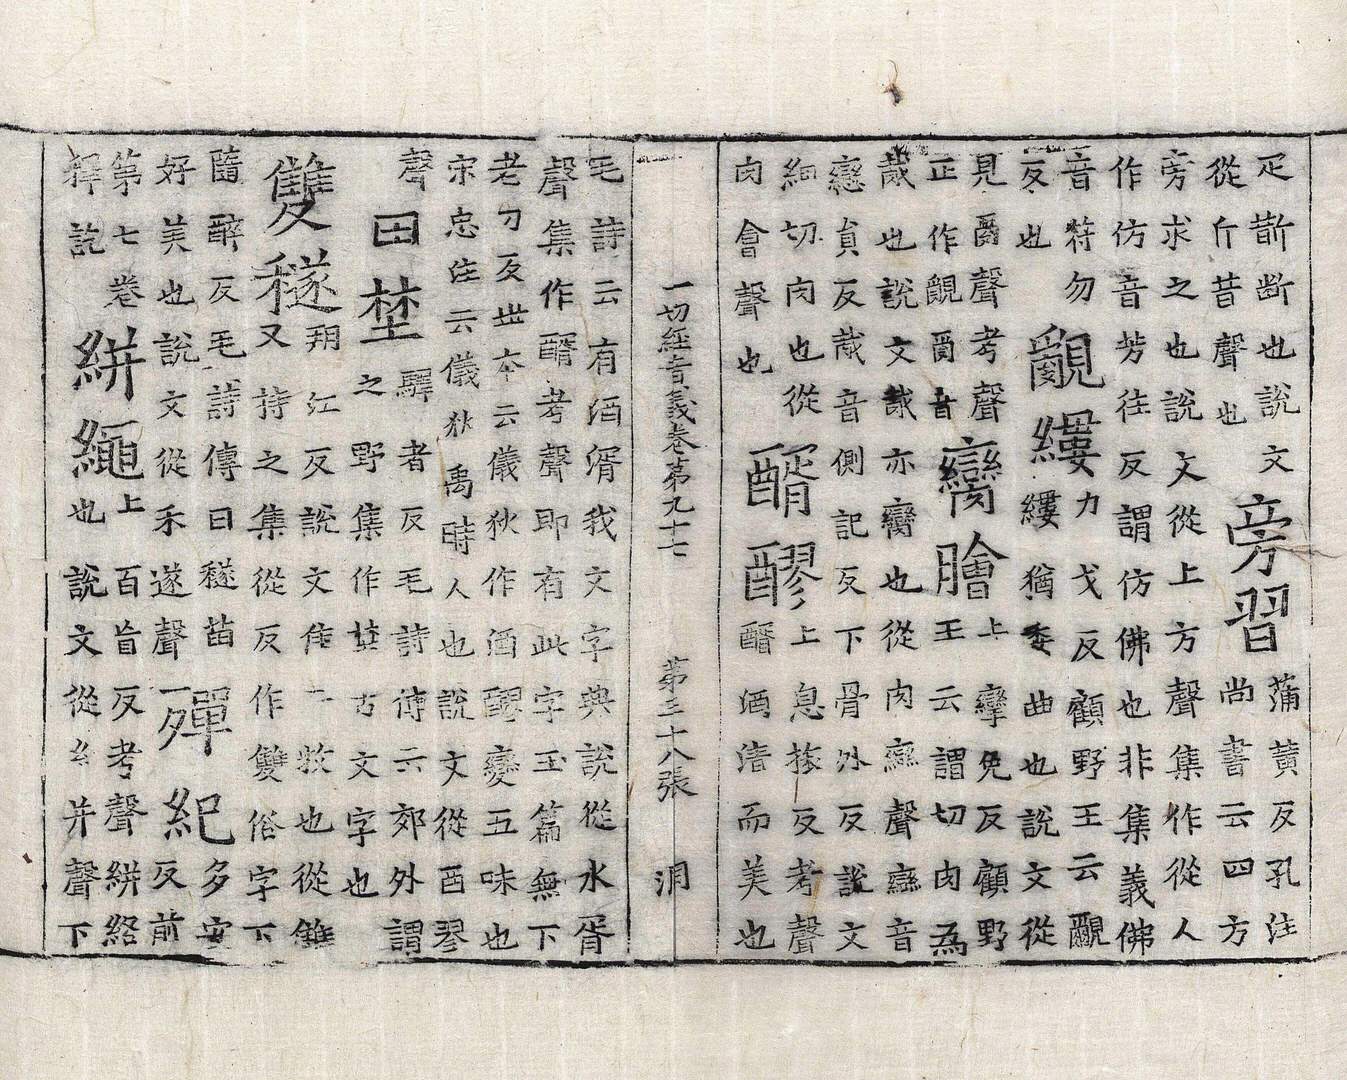 疋斲斷也說文
從斤昔聲也
旁習
蒲黃反孔注
尚書云四方
旁求之也說文從上方聲集作從人
作仿音芳往反謂仿佛也非集義佛
音符勿
反也
覶縷
力戈反顧野王云覶
縷猶委曲也說文從
見𤔔聲考聲
正作覶𤔔音
臠膾
上孿免反顧野
王云謂切肉為
胾也說文胾亦臠也從肉䜌聲䜌音
戀負反胾音側記反下骨外反說文
細切肉也從
肉會聲也
醑醪
上息掾反考聲
醑酒清而美也
一切經音義卷第九十七 第三十八張 洞
毛詩云有酒湑我文字典說從水胥
聲集作醑考聲即有此字玉篇無下
老刀反世本云儀狄作酒醪變五味也
宋忠注云儀狄禹時人也說文從酉翏
聲
田埜
驛者反毛詩傳云郊外謂
之野集作埜古文字也
雙穟
朔江反說文隹二枚也從雔
又持之集從反作䨇俗字下
隨醉反毛詩傳曰穟苗
好美也說文從禾遂聲
一殫紀
多安
反前
第七卷
釋訖
絣繩
上百首反考聲絣絡
也說文從糸并聲下